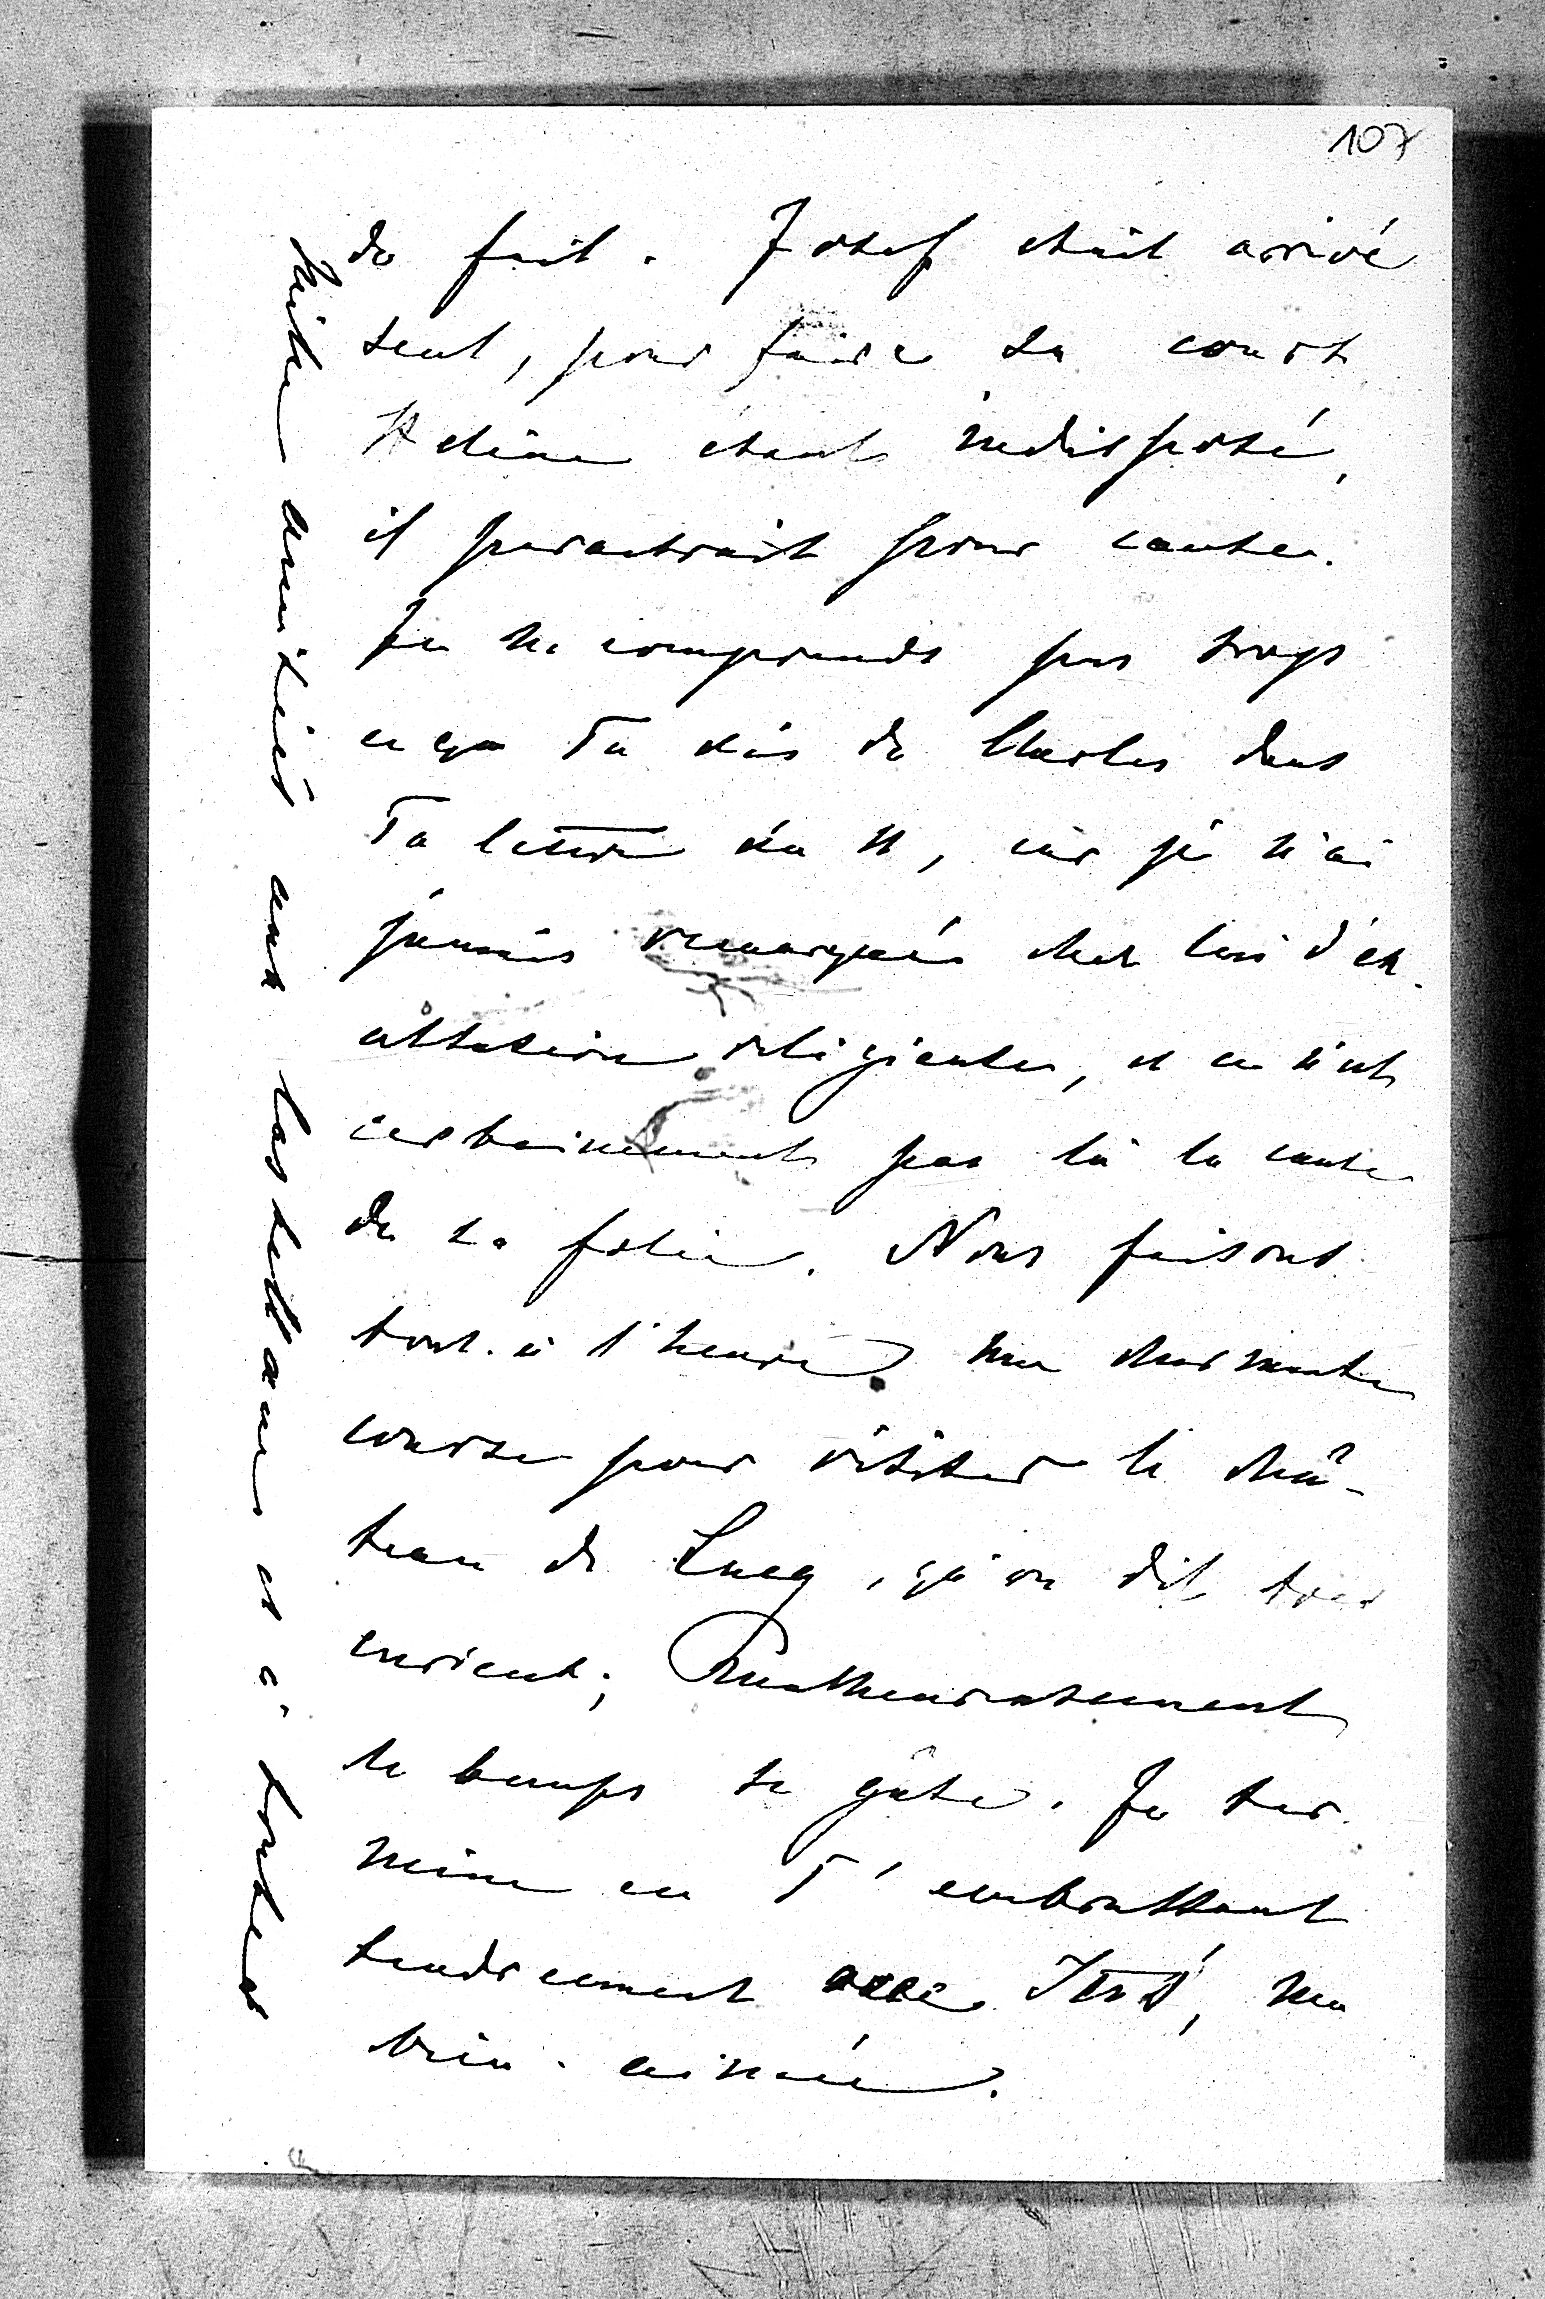 107
de fait. Josef était arrivé
seul, pour faire sa cour
Hélène étant indisposé,
il paraitrait pour cause.
Je ne comprends pas trop
ce que Tu dis de Charles dans
Ta lettre du 11, car je n'ai
jamais remarqué chez lui d'ex-
altation religieuse, et ce n'est
certainement pas là la cause
de sa folie. Nous faisons
tout-à l'heure une charmante
course pour visiter le châ-
teau de Lueg, qu'on dit très
curieux; Malheureusement
le temps se gâte. Je ter-
mine en T'embrassant
tendrement avec
bien-aimée.
amitiés aux Castellane et à toutes